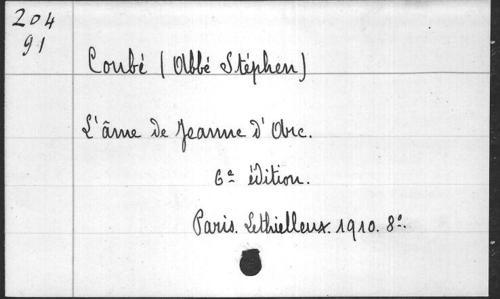 204
91
Coubé (Abbé Stéphen)
L'âme de Jeanne d'Arc.
6e édition.
Paris. Lethielleux. 1910. 8°.